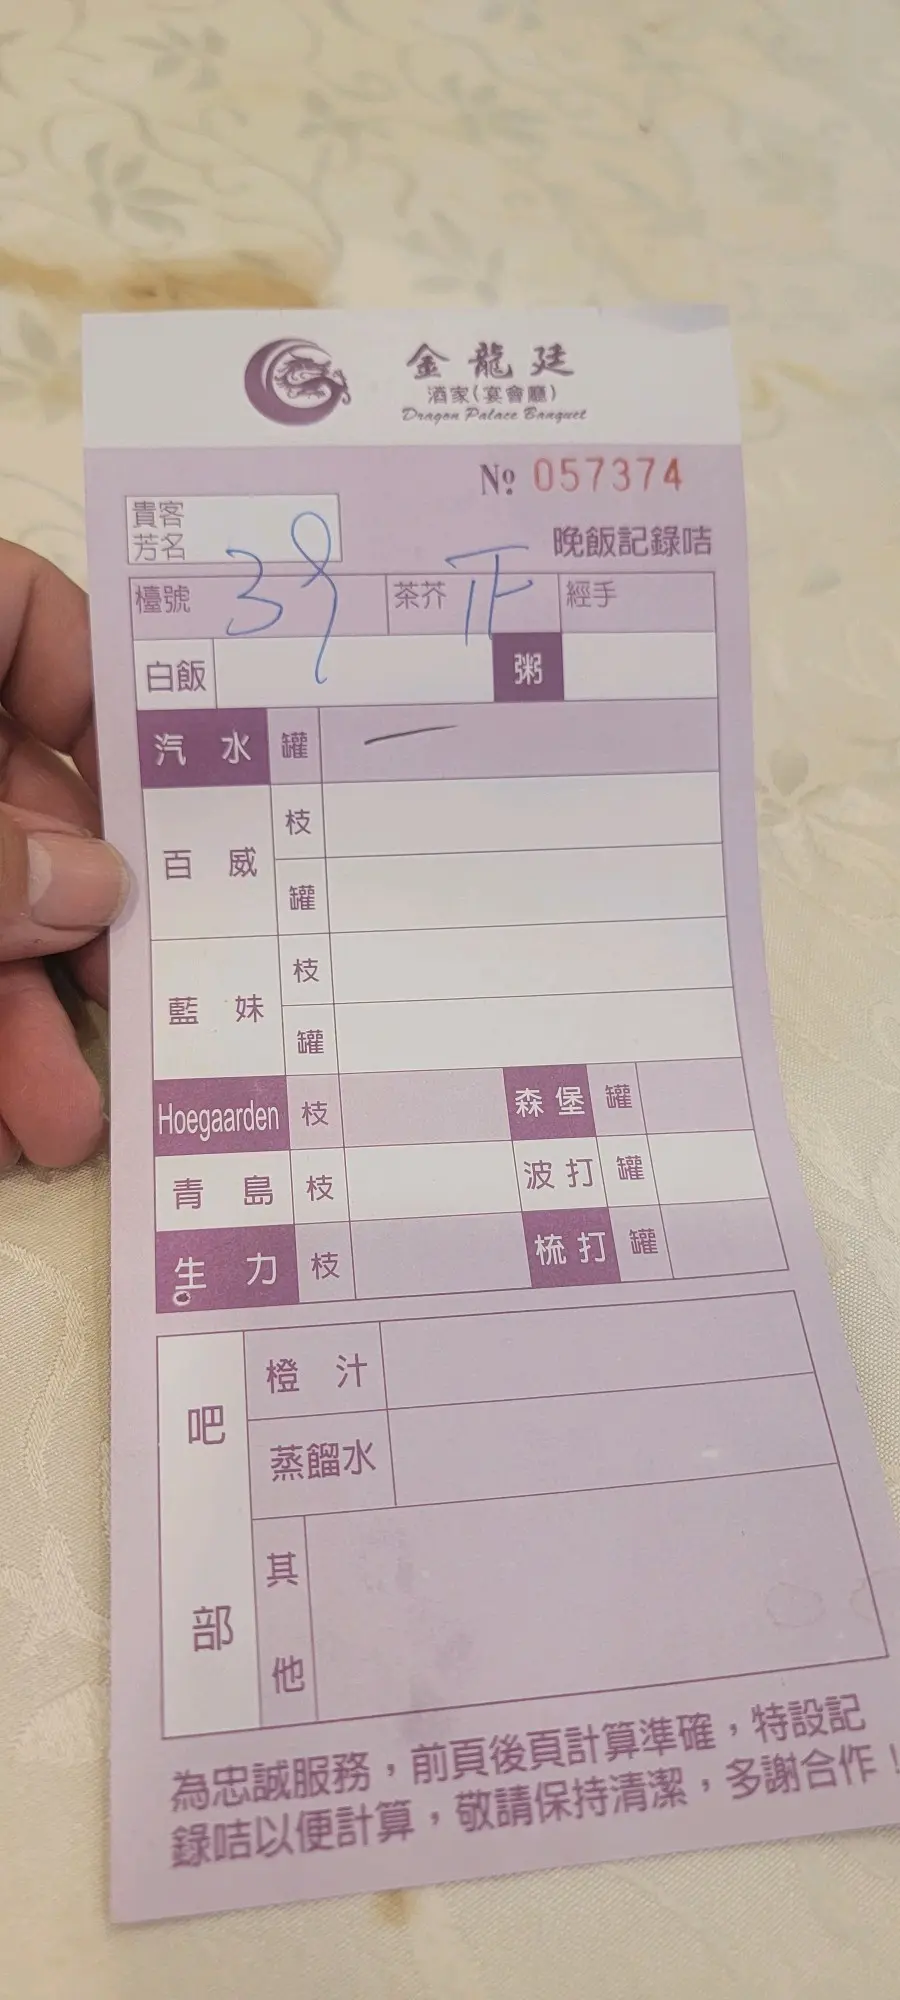 金龍廷
酒家(宴會廳)
Dragon Palace Banquet
Nº 057374
貴客
芳名
晚飯記錄咭
檯號 39 茶芥 正 經手
白飯 粥
汽水 罐 一
百威 枝
罐
藍妹 枝
罐
Hoegaarden 枝 森堡 罐
青島 枝 波打 罐
生力 枝 梳打 罐
吧部
橙汁
蒸餾水
其他
為忠誠服務，前頁後頁計算準確，特設記
錄咭以便計算，敬請保持清潔，多謝合作！